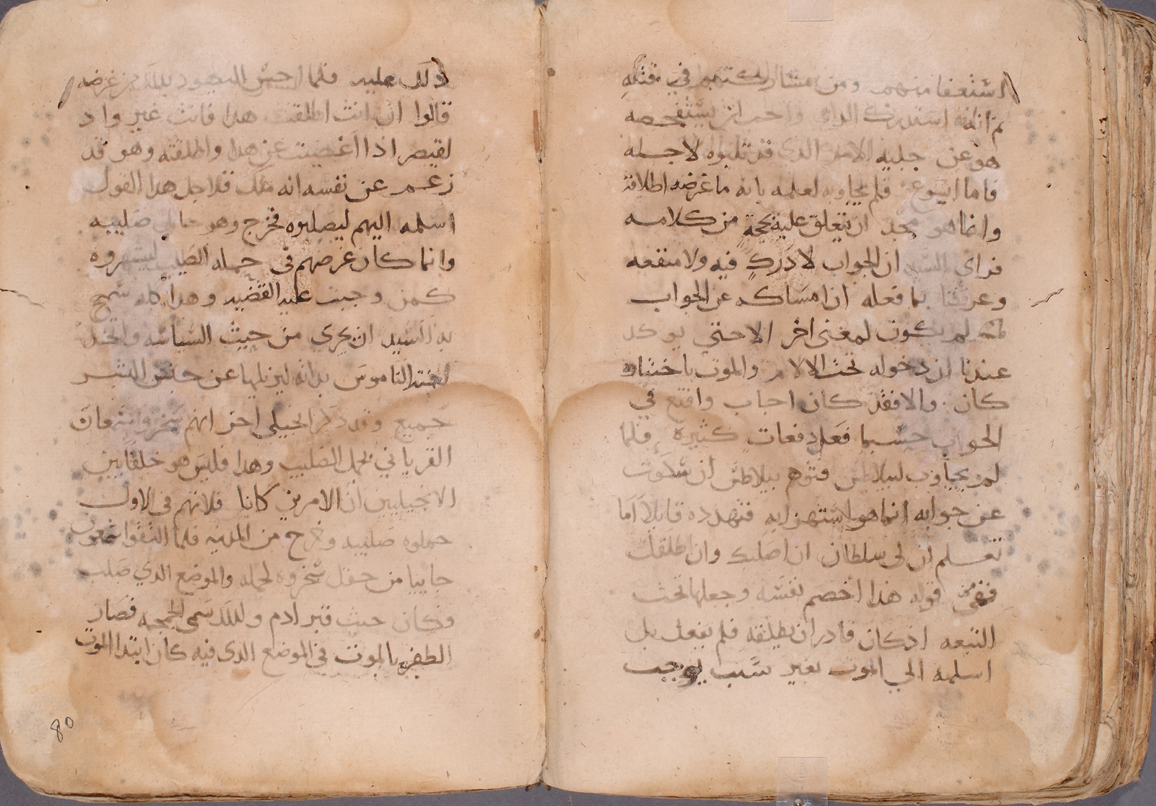 اشتعفا منهم ومن مشاركتهم في قتله
ثم انه استدرك الراي واحب ان يستفحصه
هو عن جليه الامر الذي قد ثلبوه لاجله
فاما ايسوع فلم يجاوبه لعلمه بانه ما غرضه اطلاقه
وانما هو مجد ان يتعلق عليه بحجة من كلامه
فراي السيد ان الجواب لا درك فيه ولا منفعه
وعرفنا بما فعله ان امساكه عن الجواب
لم يكون لمعنى اخر الا حتي يوكد
عندنا ان دخوله تحت الالام والموت باختياره
كان والا فقد كان اجاب واقنع في
الجواب حسبما فعل دفعات كثيرة فلما
لم يجاوب لبيلاطس فتوهم بيلاطس ان سكوته
عن جوابه انما هو استهزا به فتهدده قايلا اما
تعلم ان لي سلطان ان اصلبك وان اطلقك
ففي قوله هذا اخصم نفسه وجعلها تحت
التبعه اذ كان قادر ان يطلقه فلم يفعل بل
اسلمه الي الموت بغير سبب يوجب
ذلك عليه فلما احس اليهود بذلك من غرضه
قالوا ان انت اطلقت هذا فانت غير واد
لقيصر اذا اغضيت عن هذا واطلقته وهو قد
زعم عن نفسه انه ملك فلاجل هذا القول
اسلمه اليهم ليصلبوه فخرج وهو حامل صليبه
وانما كان غرضهم في حمله الصليب ليشهروه
كمن وجبت عليه القضيه وهذا كله سمح
به السيد ان يجري من حيث السياسه
الناموس بدانه ليزيلها عن جنس البشر
جميع وقد ذكر الانجيلي اخر انهم سخروا سمعان
القرياني بحمل الصليب وهذا فليس هو خلفا بين
الانجيليين لان الامرين كانا فلانهم في الاول
حملوه صليبه وخرج من المدينه فلما التقوا سمعون
جاييا من حقل سخروه لحمله والموضع الذي صلب
فكان حيث قبر ادم ولذلك سمي الجمجمه فصار
الظفر بالموت في الموضع الذي فيه كان ابتدا الموت
80